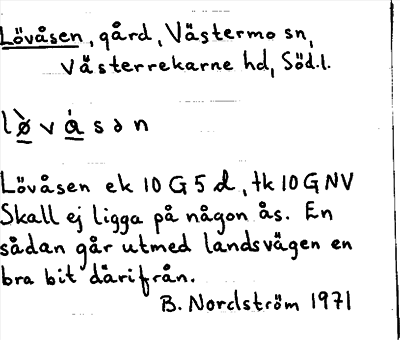 Lövåsen, gård, Västermo sn,
Västerrekarne hd, Söd.l.
lø̠̀vá̠sən
Lövåsen ek 10 G 5 d, tk 10 G NV
Skall ej ligga på någon ås. En
sådan går utmed landsvägen en
bra bit därifrån.
B. Nordström 1971